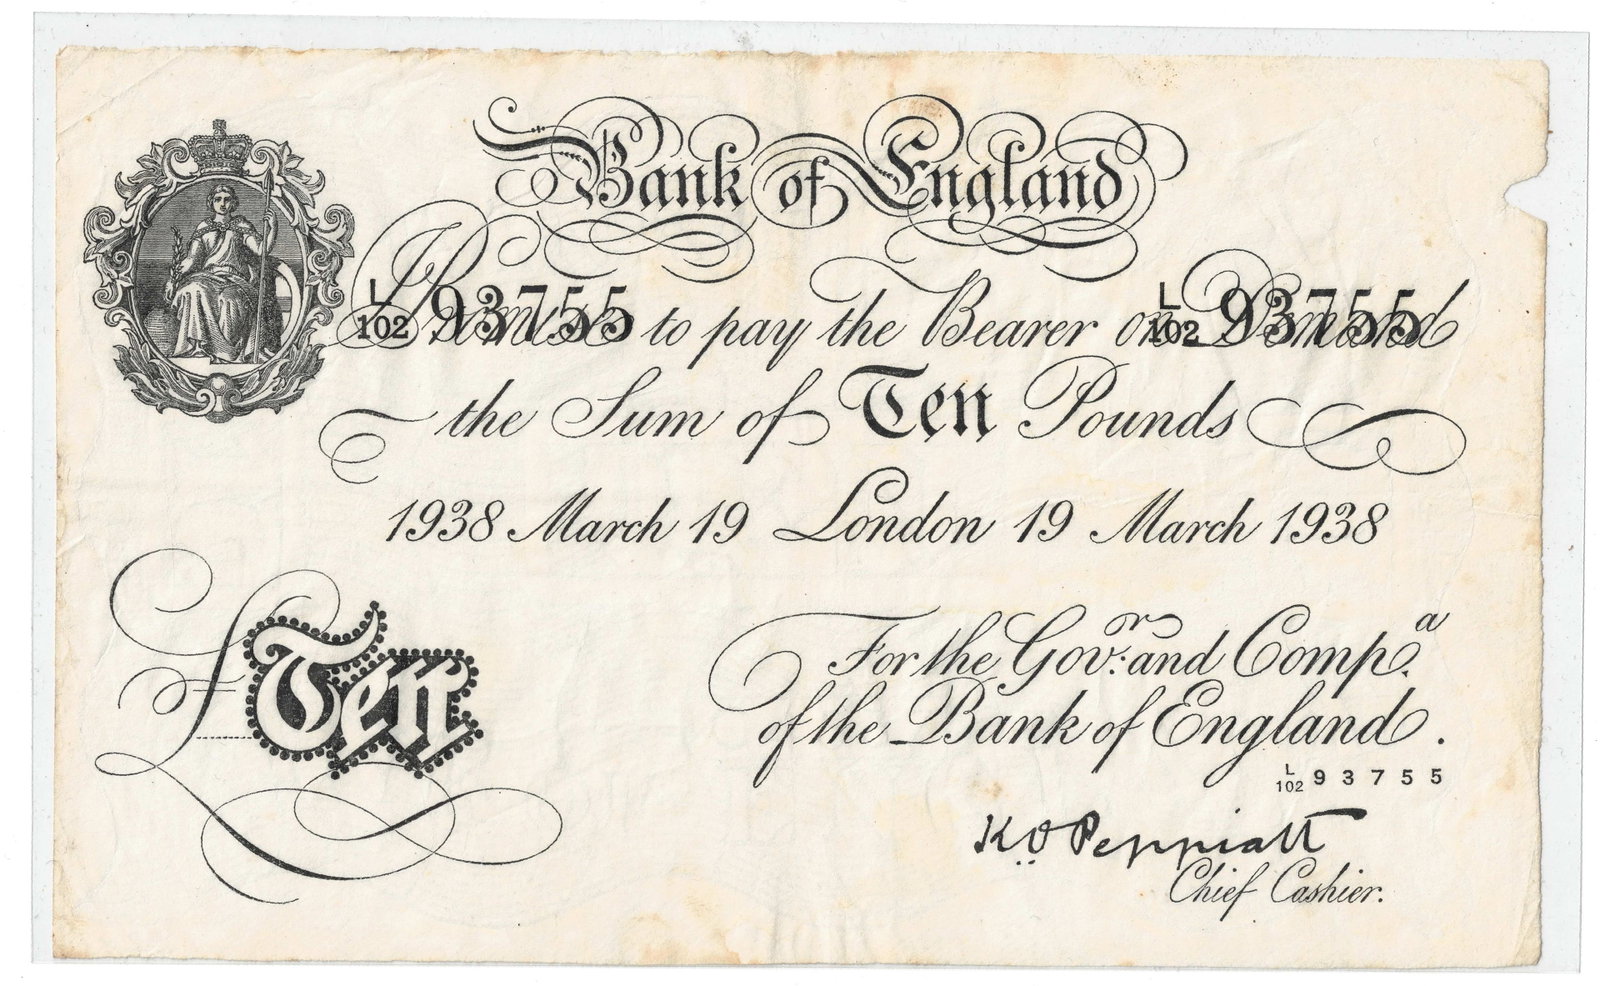 Bank of England
L/102 93755 L/102 93755
I Promise to pay the Bearer on Demand
the Sum of Ten Pounds
1938 March 19 London 19 March 1938
For the Govr: and Compa.
of the Bank of England.
L/102 93755
£Ten
K.O. Peppiatt
Chief Cashier.